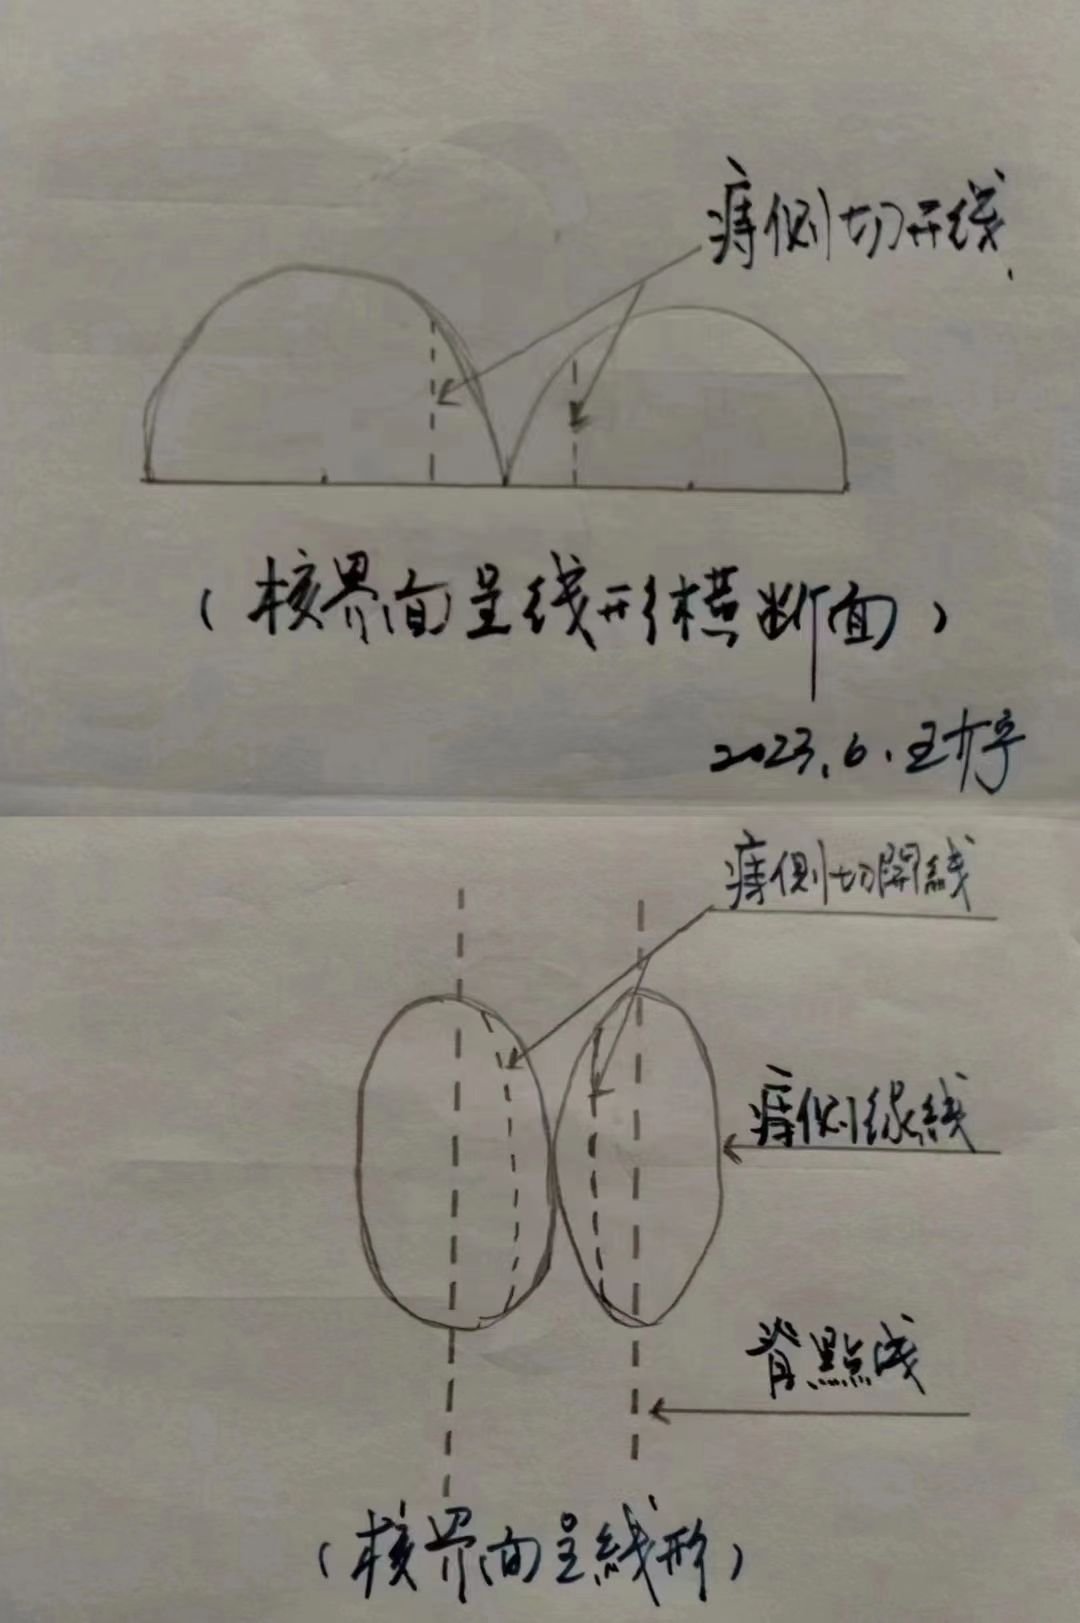 痔侧切开线
(核界面呈线形横断面)
2023.6.王
痔侧切開線
痔侧缘線
脊點线
(核界面呈線形)